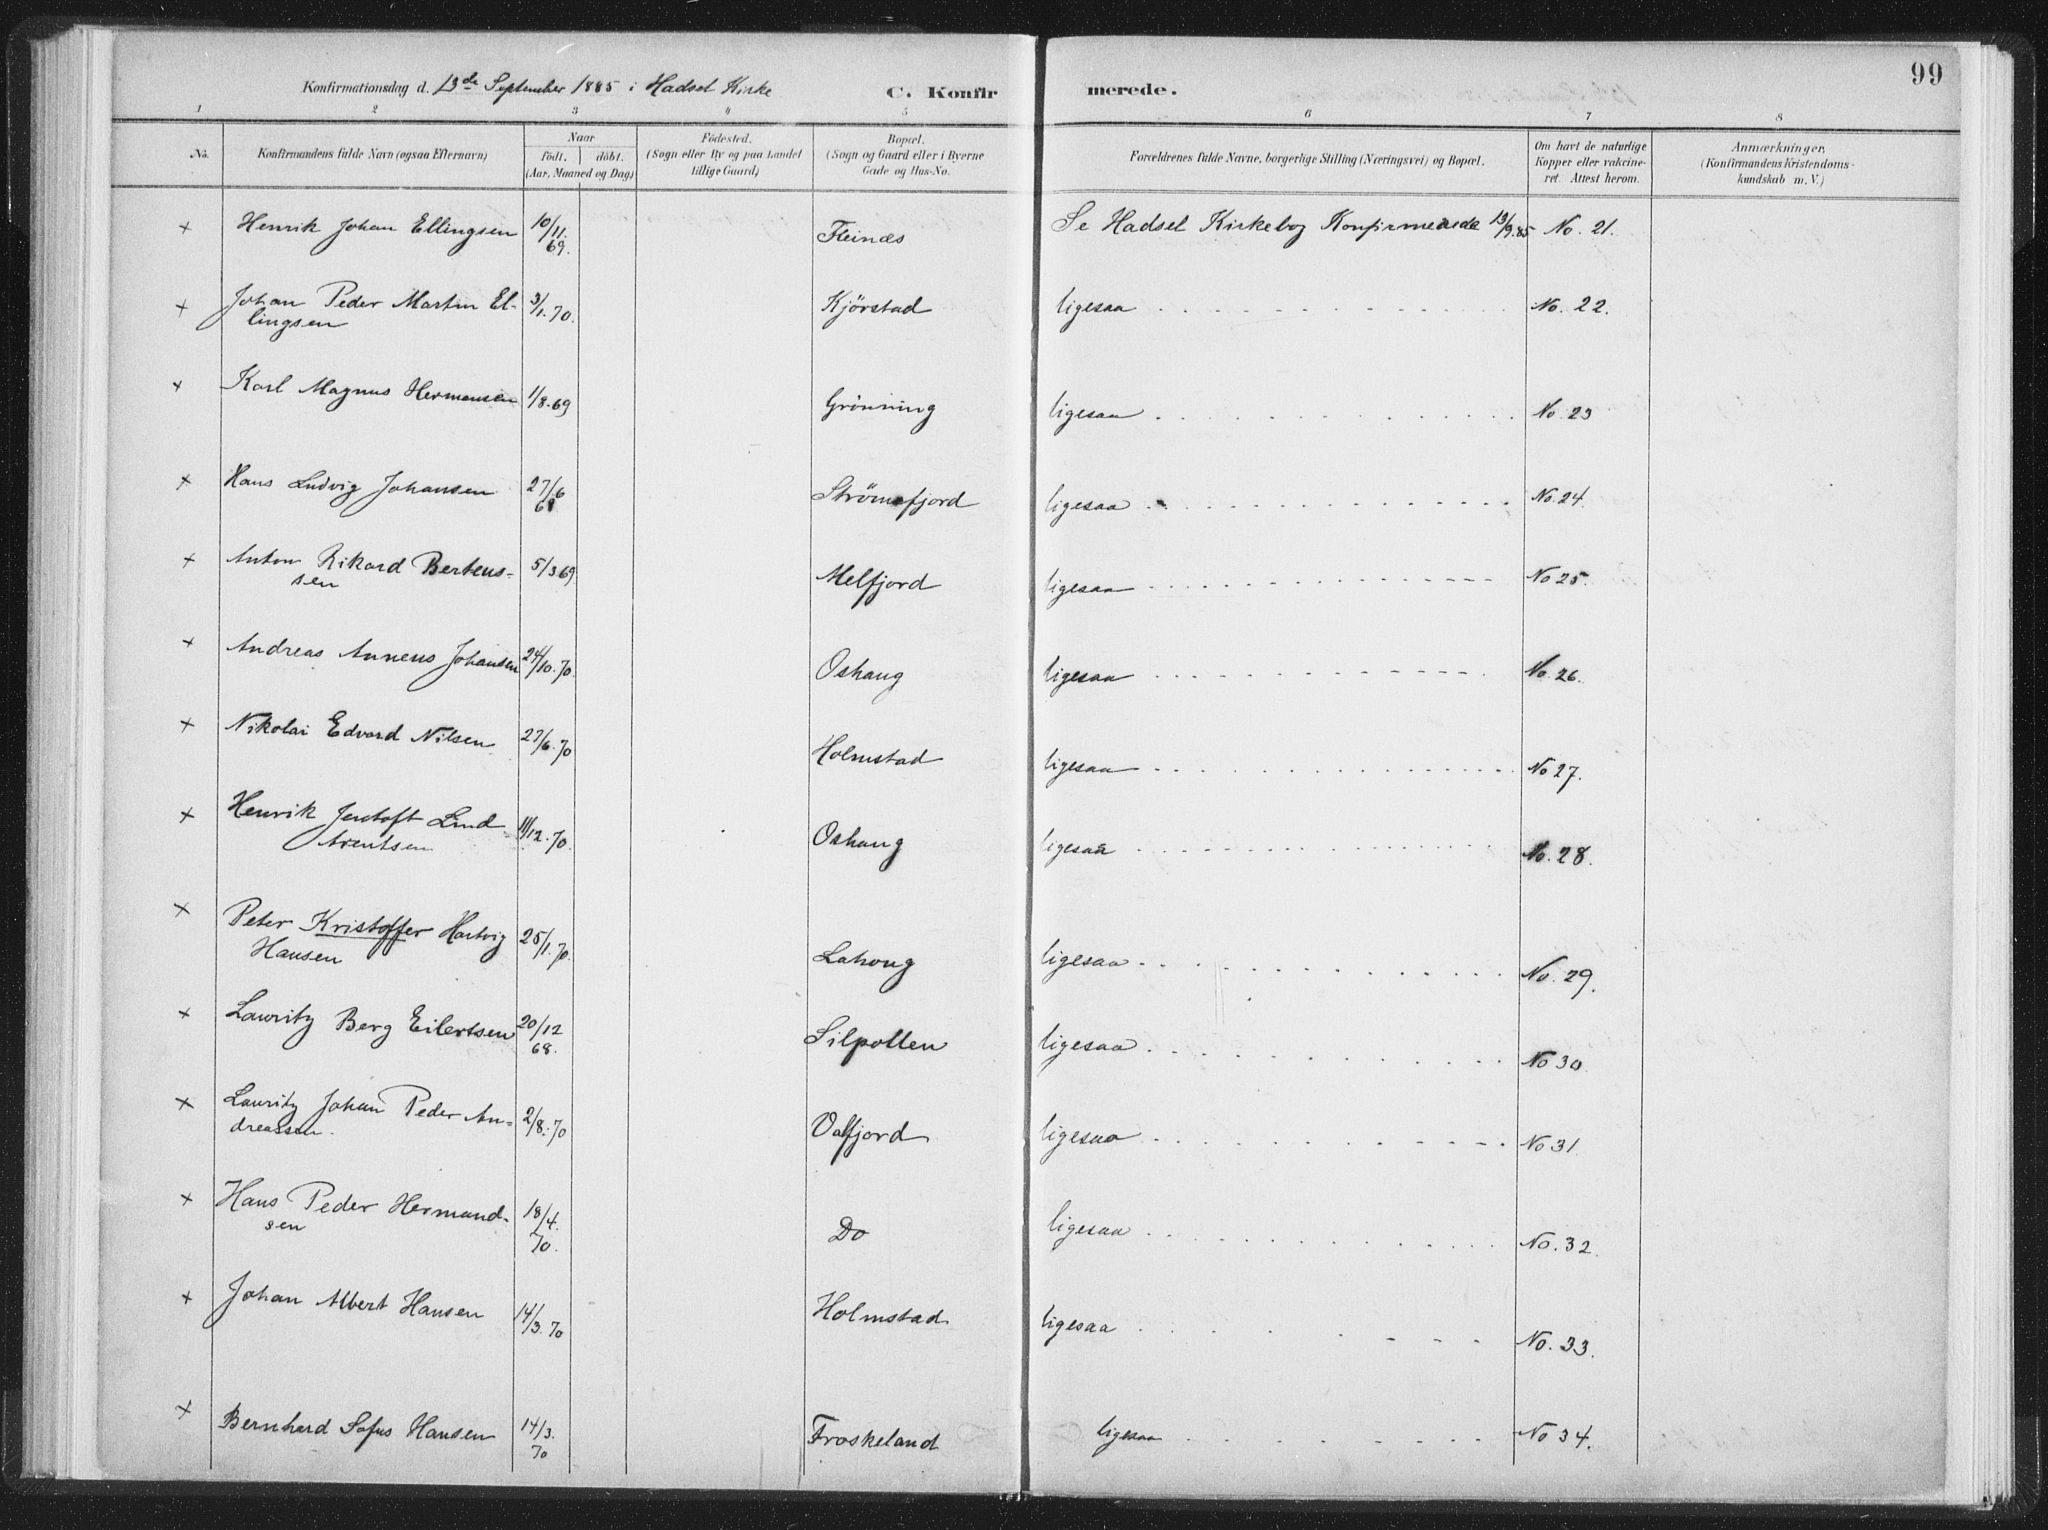 99
Konfirmationsdag d. 13de September 1885 i Hadsel Kirke C. Konfirmerede.
1 2 3 4 5 6 7 8
No. Konfirmandens fulde Navn (ogsaa Efternavn) Naar født. døbt. (Aar, Maaned og Dag) Fødested. (Sogn eller By og paa Landet tillige Gaard) Bopæl. (Sogn og Gaard eller i Byerne Gade og Hus-No. Forældrenes fulde Navne, borgerlige Stilling (Næringsvei) og Bopæl. Om havt de naturlige Kopper eller vakcineret. Attest herom. Anmærkninger, (Konfirmandens Kristendomskundskab m. V.)
+ Henrik Johan Ellingsen 10/11. 69. Fleinæs Se Hadsel Kirkebog Konfirmerede 13/9.85 No. 21.
+ Johan Peder Martin El- 3/1.70. Kjörstad ligesaa No. 22.
lingsen
+ Karl Magnus Hermansen 1/8.69 Grönning ligesaa No. 23
+ Hans Ludvig Johansen 27/6 68 Strömsfjord ligesaa No. 24.
+ Anton Rikard Berteus- 5/3.69 Melfjord ligesaa No 25.
sen
+ Andreas Annæus Johansen 24/10.70. Oshaug ligesaa No. 26.
+ Nikolai Edvard Nilsen 27/6.70 Holmstad ligesaa No 27.
+ Henrik Jentoft Lind 11/12.70. Oshaug ligesaa No. 28.
Arentsen
+ Peter Kristoffer Hartvig 25/1.70. Lahoug ligesaa No. 29.
Hansen
+ Lauritz Berg Eilertsen 20/12 68. Silpollen ligesaa No 30
+ Lauritz Johan Peder An- 2/8.70 Valfjord ligesaa No 31
dreassen.
+ Hans Peder Hermand- 18/4. 70. Do ligesaa No. 32.
sen
+ Johan Albert Hansen 14/3.70 Holmstad ligesaa No. 33.
+ Bernhard Sofus Hansen 14/3. 70 Froskeland ligesaa No 34.